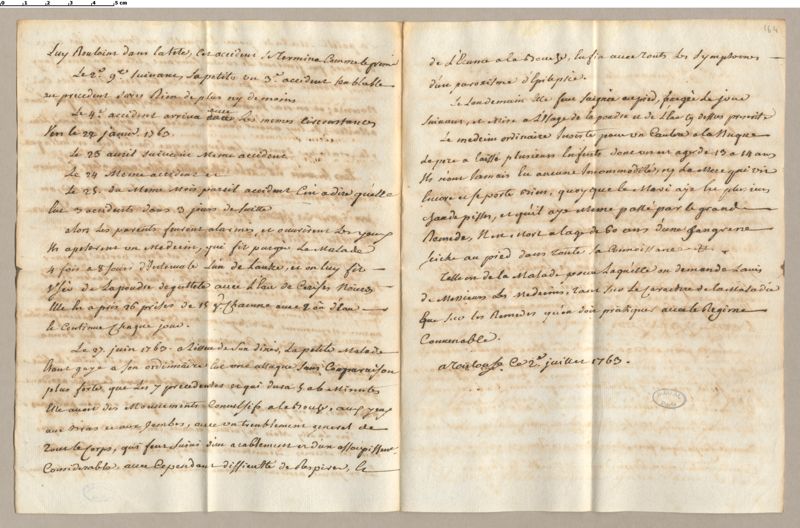 Luy Rouloint dans la tete, Cet accident Se Termina Comme le premier
Le 2e 9bre Suivant, La petite eu 3e accident Semblable
au precedent Sans Rien de plus ny de moins
Le 4e accident arriva avec Les memes Circonstances
Sur le 22 janvier 1763
Le 23 avril Suivant Meme accident
Le 24 Meme accident et
Le 25 du Meme Mois pareil accident C'est a dire qu'elle
Eut 3 accidents dans 3 jours de Suitte
alors les parents furent alarmes, et ouvrirent Les yeux
Ils apelerent un Medecin, qui fit purger La Malade
4 fois a 8 jours d'Intervale L'un de L'autre, et on luy fit
User de La poudre de guttete avec L'Eau de Cerises Noires
Elle En a pris 26 prises de 15 gr Chacune avec 2 on d'Eau
Le Continue Chaque jour.
Le 27 juin 1763 a L'issue de Son diner, La petite Malade
Etant gaye a Son ordinaire Eut une attaque Sans Comparaison
plus forte que Les 7 precedentes et qui dura 5 a 6 Minutes
Elle avoit des Mouvements Convulsifs a la Bouche, aux yeux
aux Bras et aux Jambes, avec un tremblement general de
Tout le Corps, qui feut Suivi d'un acablement et d'un assoupissement
Considerable, avec Cependant difficulté de Respirer, et
164
de L'Ecume a la Bouche, Enfin avec Touts Les Symptomes
d'un paroxisme d'Epilepsie.
Le Lendemain Elle feut Saignée au pied, purgée Le jour
Suivant, et Mise a L'Usage de la poudre et de L'Eau cy dessus
Le medecin ordinaire Insiste pour un Cautere a la Nuque
Le pere a laissé plusieurs Enfants dont un est agé de 13 a 14 ans
Ils n'ont Jamais Eu aucune Incommodité, ny La Mere qui vit
Encore et se porte bien, quoy que le Mari aye Eu plusieurs
Chaude pisses, et qu'il aye Meme passé par le grand
Remede, Il est Mort a l'age de 60 ans d'une Gangrene
Seche au pied dans Toute Sa Connoissance
Telle est de la Malade pour Laquelle on demande L'avis
de Messieurs Les Medecins, Tant Sur Le Caractere de la Maladie
Que Sur les Remedes qu'on doit pratiquer avec le Regime
Convenable.
a Toulouse Ce 2e juillet 1763.